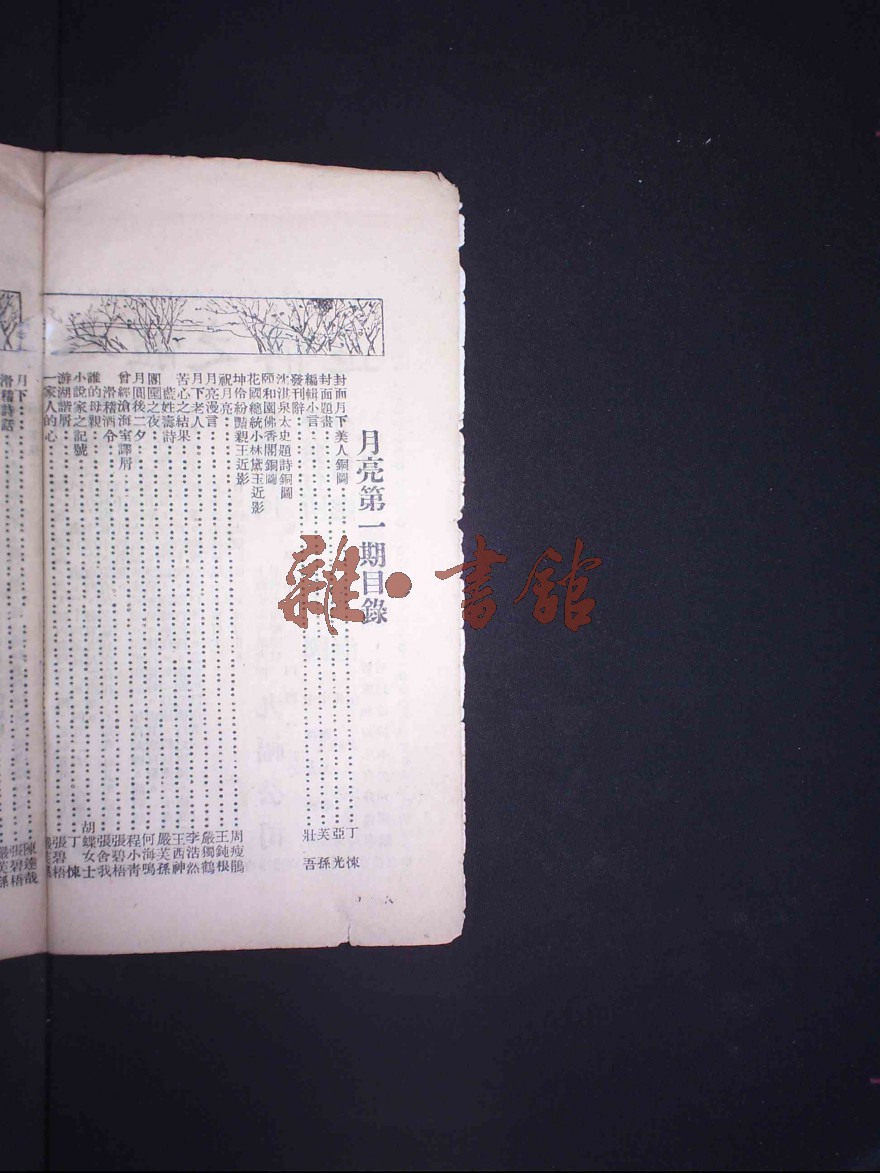 月亮第一期目錄
封面月下美人銅圖……丁悚
封面題畫……亞光
編輯小言……芙孫
發刊辭……壯吾
沈淇泉太史題詩銅圖
頤和園佛香閣銅圖
花國總統小林黛玉近影
坤伶紛豔親王近影
祝月亮……周瘦鵑
月亮漫言……王鈍根
月下老人……嚴獨鶴
苦心之結果……李浩然
藍姓壽詩……王西神
團圞之夜……嚴芙孫
月圓後二夕……何海鳴
曾經滄海室譯屑……程小青
滑稽酒令……張碧梧
誰的母親……張舍我
小說家之記號……胡蝶女士
游湖諧屑……丁悚
一家人的心……張碧梧
月下……陳達哉
滑稽詩話……張碧梧
嚴芙孫
雜·書館